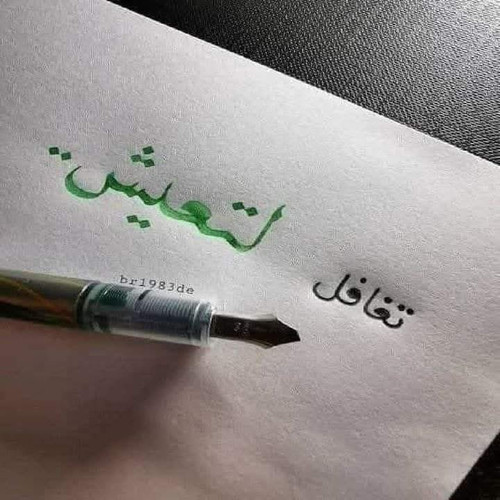 تغافل
لتعيش.
br1983de